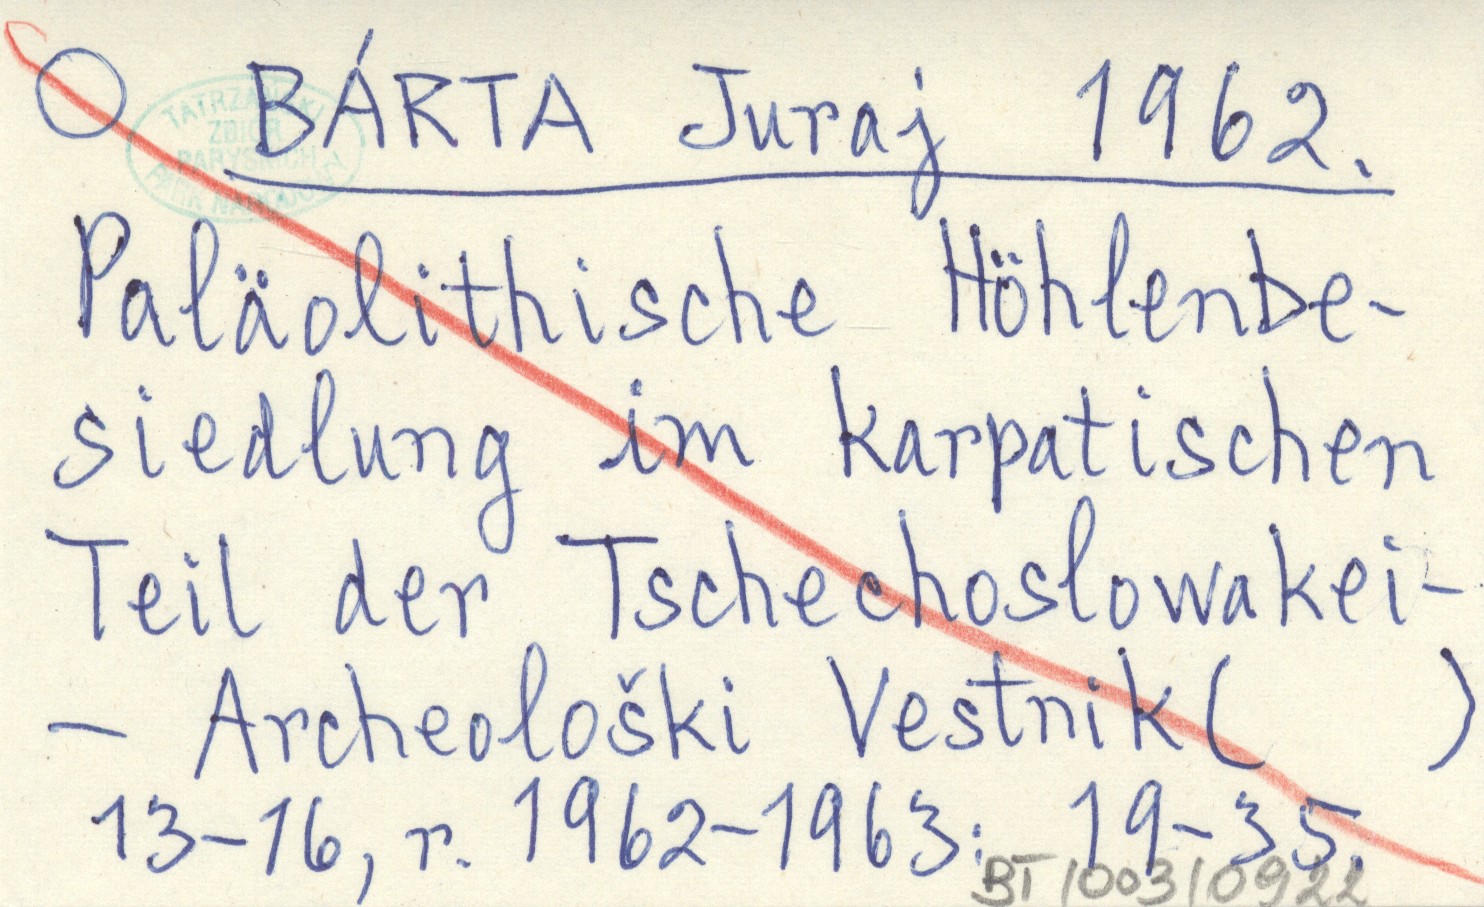 BÁRTA Juraj 1962.
TATRZAŃSKI
ZBIÓR
PARYSKICH
PARK NARODOWY
Paläolithische Höhlenbe-
siedlung im karpatischen
Teil der Tschechoslowakei-
- Archeološki Vestnik( )
13-16, r. 1962-1963: 19-35.
BT/003/0922